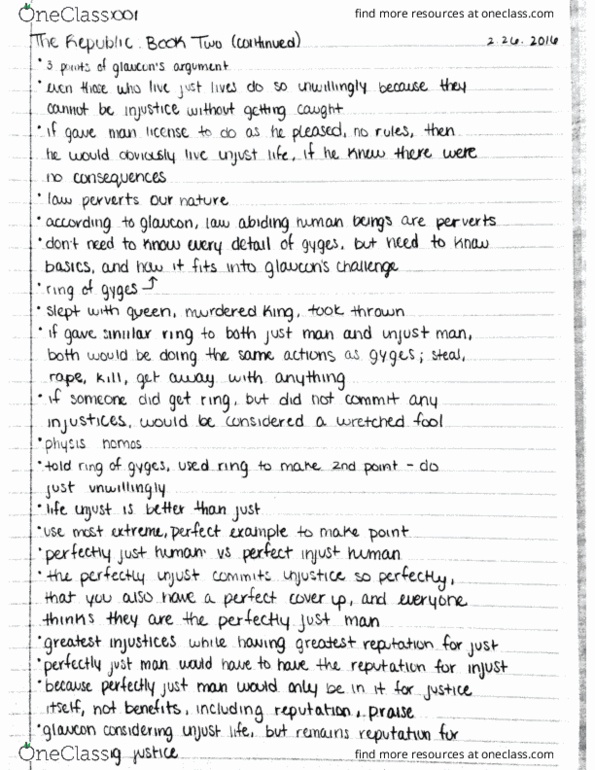 OneClass
x001
find more resources at oneclass.com
The Republic Book Two (continued) 2.26.2016
• 3 points of glaucon's argument
• even those who live just lives do so unwillingly because they
cannot be injustice without getting caught
• if gave man license to do as he pleased, no rules, then
he would obviously live unjust life, if he knew there were
no consequences
• law perverts our nature
• according to glaucon, law abiding human beings are perverts
• don't need to know every detail of gyges, but need to know
basics, and how it fits into glaucon's challenge
• ring of gyges ↑
• slept with queen, murdered king, took thrown
• if gave similar ring to both just man and unjust man,
both would be doing the same actions as gyges; steal,
rape, kill, get away with anything
• if someone did get ring, but did not commit any
injustices, would be considered a wretched fool
• physis nomos
• told ring of gyges, used ring to make 2nd point - do
just unwillingly
• life unjust is better than just
• use most extreme, perfect example to make point
• perfectly just human vs perfect injust human
• the perfectly unjust commits unjustice so perfectly,
that you also have a perfect cover up, and everyone
thinks they are the perfectly just man
• greatest injustices while having greatest reputation for just
• perfectly just man would have to have the reputation for injust
• because perfectly just man would only be in it for justice
itself, not benefits, including reputation, praise
• glaucon considering unjust life, but remains reputation for
OneClass
justice
find more resources at oneclass.com